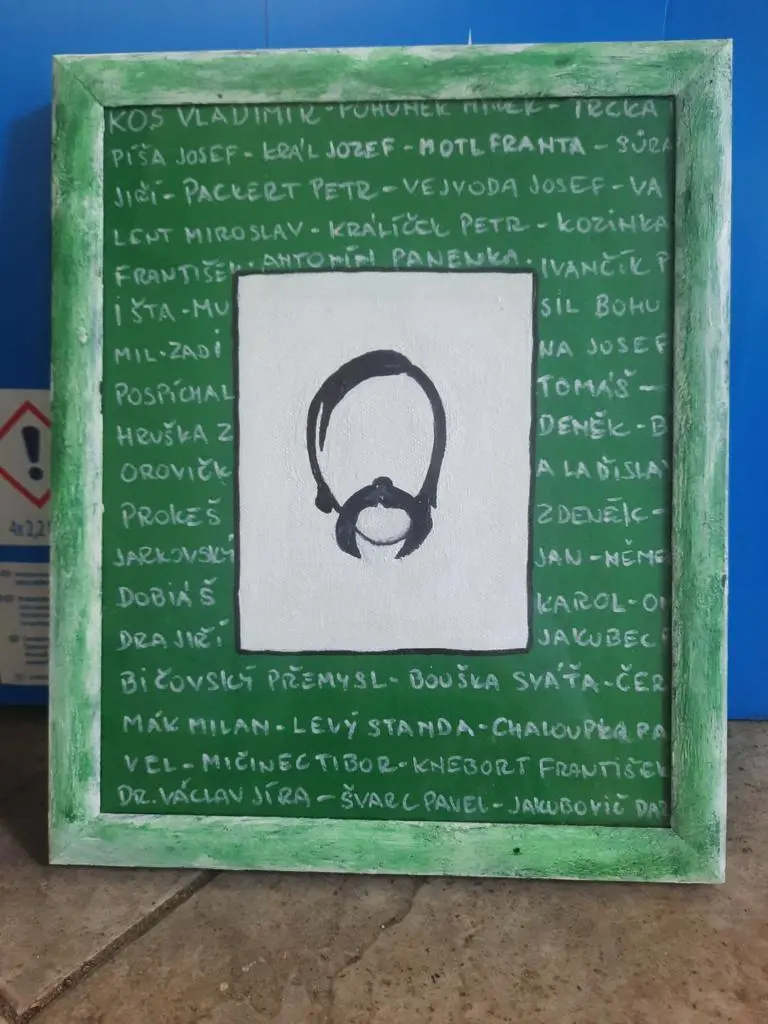 KOS VLADIMÍR - POHUNEK MIREK - TRČKA
PÍŠA JOSEF - KRÁL JOZEF - MOTL FRANTA - SŮRA
JIŘÍ - PACKERT PETR - VEJVODA JOSEF - VA
LENT MIROSLAV - KRÁLÍČEK PETR - KOZINKA
FRANTIŠEK - ANTONÍN PANENKA - IVANČÍK P
IŠTA - MU SIL BOHU
MIL - ZADI NA JOSEF
POSPÍCHAL TOMÁŠ -
HRUŠKA Z DENĚK - B
OROVIČK A LADISLAV
PROKEŠ ZDENĚK -
JARKOVSKÝ JAN - NĚME
DOBIÁŠ KAROL -
DRA JIŘÍ JAKUBEC
BIČOVSKÝ PŘEMYSL - BOUŠKA SVÁŤA - ČER
MÁK MILAN - LEVÝ STANDA - CHALOUPKA PA
VEL - MIČINEC TIBOR - KNEBORT FRANTIŠEK
DR. VÁCLAV JÍRA - ŠVARC PAVEL - JAKUBOVIČ DA
4x2,2